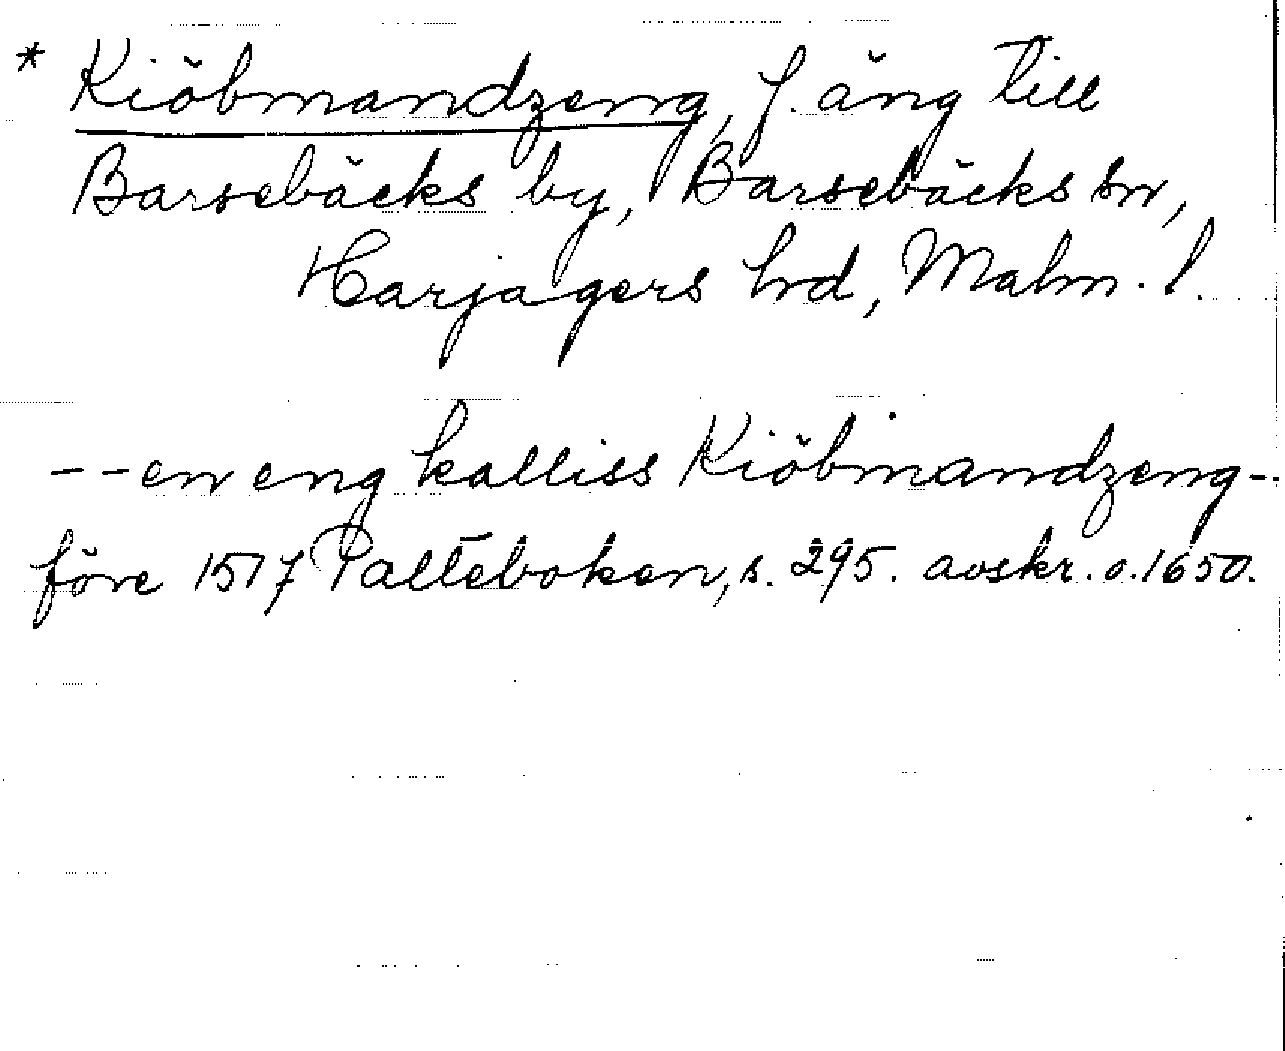 * Kiöbmandzeng, f. äng till
Barsebäcks by, Barsebäcks sn,
Harjagers hrd, Malm. l.
-- en eng kalliss Kiöbmandzeng --
före 1517 Palteboken, s. 295. avskr. o. 1650.